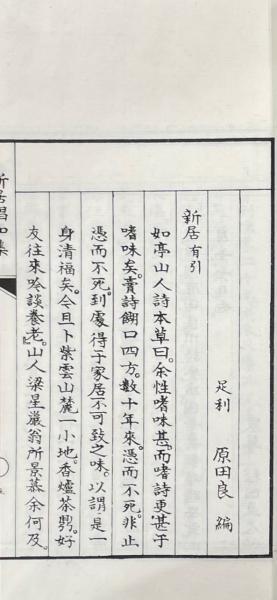 足利　原田良　編
新居有引
如亭山人詩本草曰。余性嗜味甚。而嗜詩更甚于
嗜味矣。賣詩餬口四方。數十年來。憑而不死。非止
憑而不死。到處得于家居不可致之味。以謂是一
身清福矣。今且卜紫雲山麓一小地。香爐茶㽅。好
友往來吟談養老。』山人梁星巖翁所景慕余何及。
新居唱和集